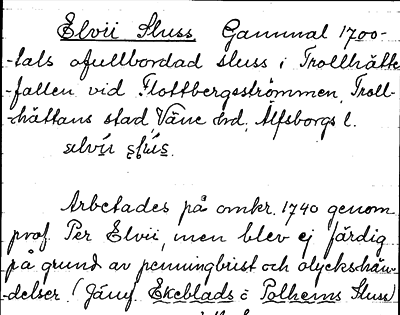 Elvii Sluss Gammal 1700-
-tals ofullbordad sluss i Trollhätte
-fallen vid Flottbergsströmmen, Troll-
-hättans stad, Väne hd, Älfsborgs l.
Arbetades på omkr. 1740 genom
prof. Per Elvii, men blev ej färdig
på grund av penningbrist och olyckshän-
-delser. (Jämf. Ekeblads o Polhems Sluss)